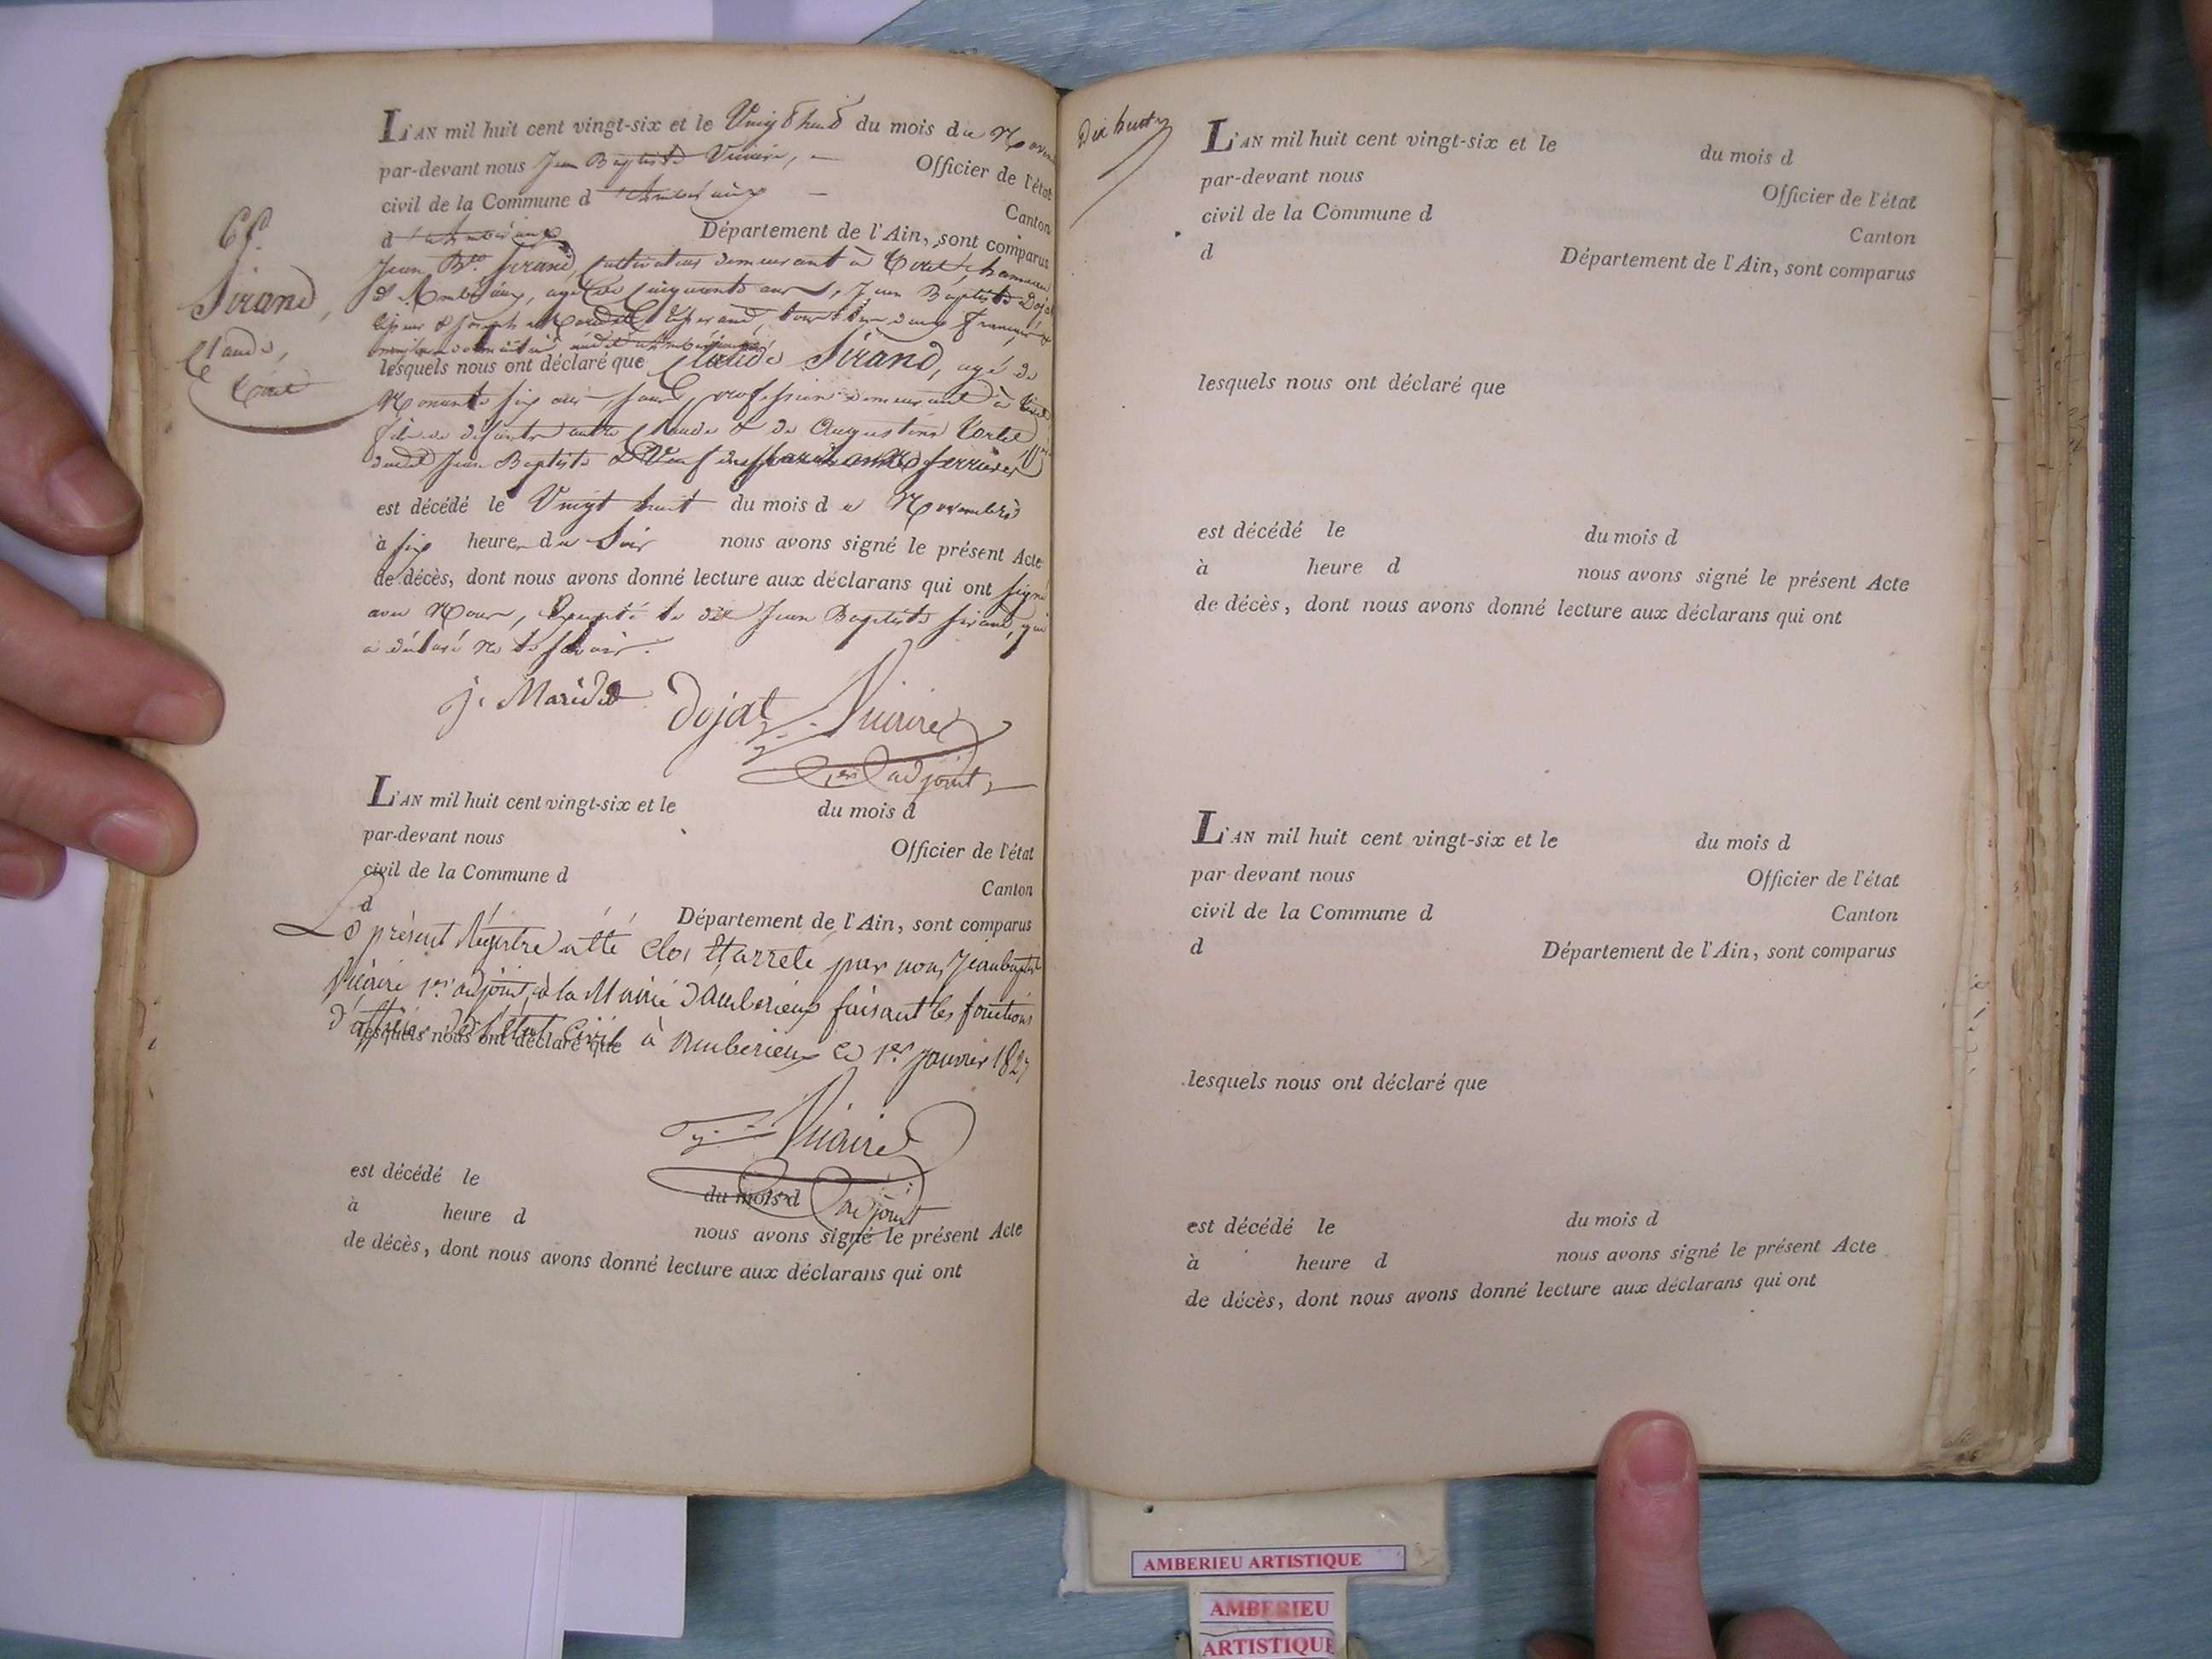 L'AN mil huit cent vingt-six et le Vingt huit du mois de
par-devant nous Jean Baptiste Vicaire, Officier de l'état
civil de la Commune d'Ambérieux Canton
d'Ambérieux Département de l'Ain, sont comparus
Jean Bte Sirand, Cultivateur demeurant à hameau
d'Ambérieux, agé de Cinquante ans, Jean Baptiste Dojat
lesquels nous ont déclaré que Claude Sirand, agé de
Nonante six ans, sans profession demeurant à
fils de défunts autre Claude & de Augustine
dudit Jean Baptiste & Veuf de Ferrier
est décédé le Vingt huit du mois de Novembre
à six heures du Soir nous avons signé le présent Acte
de décès, dont nous avons donné lecture aux déclarans qui ont signé
avec Nous, Excepté le dit Jean Baptiste Sirand, qui
a déclaré ne le savoir.
68.
Sirand,
Claude,
J. Maridet Dojat Vicaire
1er adjoint
L'AN mil huit cent vingt-six et le du mois d
par-devant nous Officier de l'état
civil de la Commune d Canton
d Département de l'Ain, sont comparus
Le présent Régistre a été clos et arreté par nous Jeanbaptiste
Vicaire 1er adjoint à la Mairie d'Amberieux faisant les fonctions
d'officier de l'Etat Civil à Amberieux ce 1er janvier 1827
lesquels nous ont déclaré que
Vicaire
adjoint
est décédé le du mois d
à heure d nous avons signé le présent Acte
de décès, dont nous avons donné lecture aux déclarans qui ont
Dix huit
L'AN mil huit cent vingt-six et le du mois d
par-devant nous Officier de l'état
civil de la Commune d Canton
d Département de l'Ain, sont comparus
lesquels nous ont déclaré que
est décédé le du mois d
à heure d nous avons signé le présent Acte
de décès, dont nous avons donné lecture aux déclarans qui ont
L'AN mil huit cent vingt-six et le du mois d
par-devant nous Officier de l'état
civil de la Commune d Canton
d Département de l'Ain, sont comparus
lesquels nous ont déclaré que
est décédé le du mois d
à heure d nous avons signé le présent Acte
de décès, dont nous avons donné lecture aux déclarans qui ont
AMBERIEU ARTISTIQUE
AMBERIEU
ARTISTIQUE